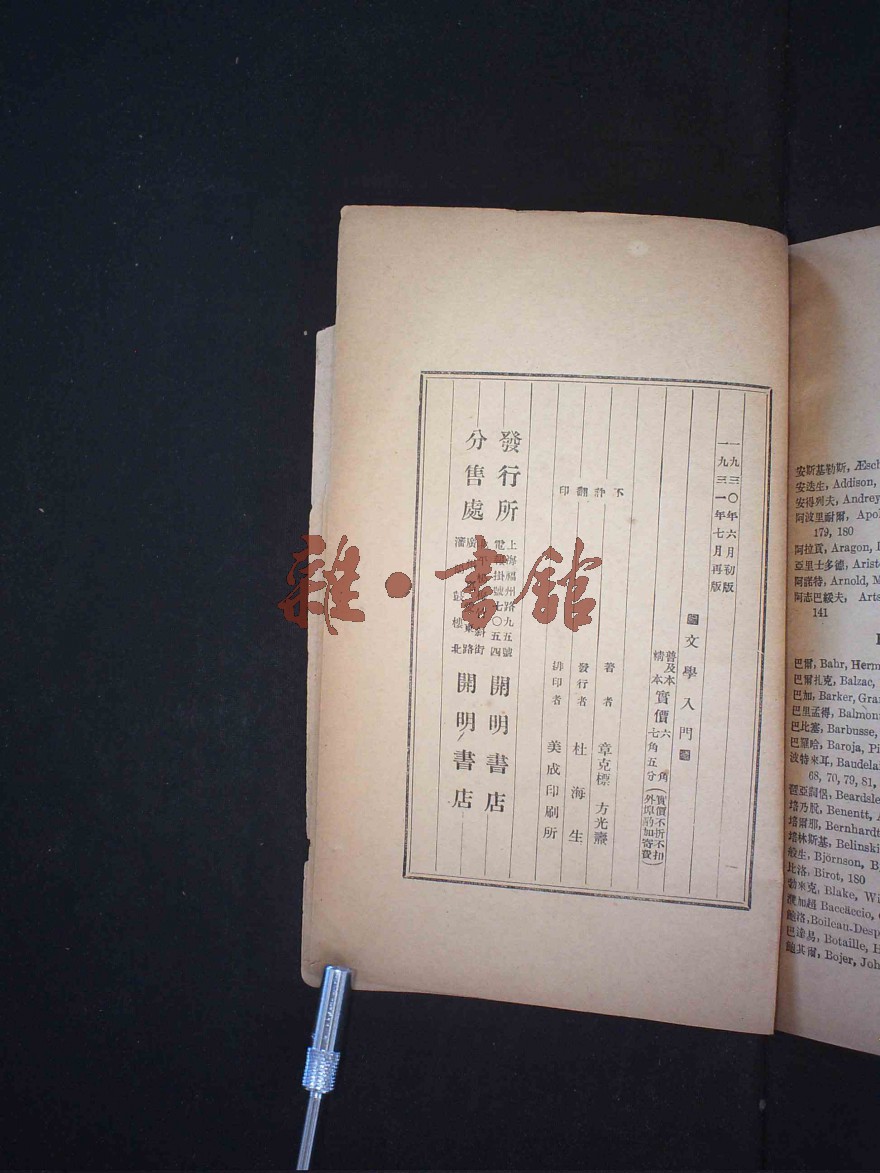 一九三〇年六月初版
一九三一年七月再版
文學入門
普及本
精本
實價
六角
七角五分
(實價不折不扣
外埠酌加寄費)
著者 章克標 方光燾
發行者 杜海生
排印者 美成印刷所
不許翻印
發行所
上海福州路九五號
電報掛號七〇五四
開明書店
分售處
開明書店
雜·書館
安斯基勒斯, Æsch
安迭生, Addison,
安得列夫, Andrey
阿波里耐爾, Apol
179, 180
阿拉貢, Aragon,
亞里士多德, Arist
阿諾特, Arnold, M
阿志巴綏夫, Arts
141
巴爾, Bahr, Herm
巴爾扎克, Balzac,
巴加, Barker, Gra
巴里孟得, Balmon
巴比塞, Barbusse,
巴羅哈, Baroja, Pi
波特來耳, Baudela
68, 70, 79, 81,
Beardsle
培乃脫, Benentt, A
培爾那, Bernhardt
培林斯基, Belinski
般生, Björnson, B
比洛, Birot, 180
勃來克, Blake, Wi
濮加超 Baccäccio,
鮑格, Boileau-Desp
巴達易, Botaille, H
鮑其爾, Bojer, Joh